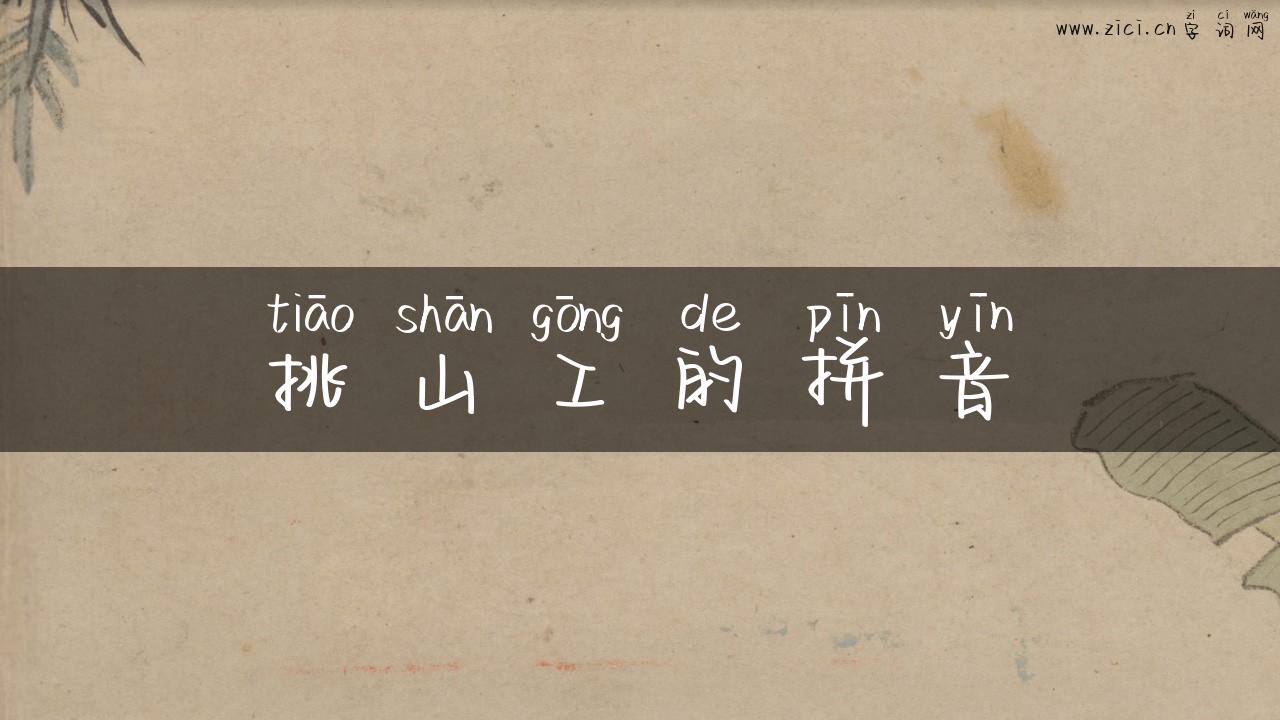 zì cí wǎng
www.zici.cn 字词网
tiāo shān gōng de pīn yīn
挑山工的拼音